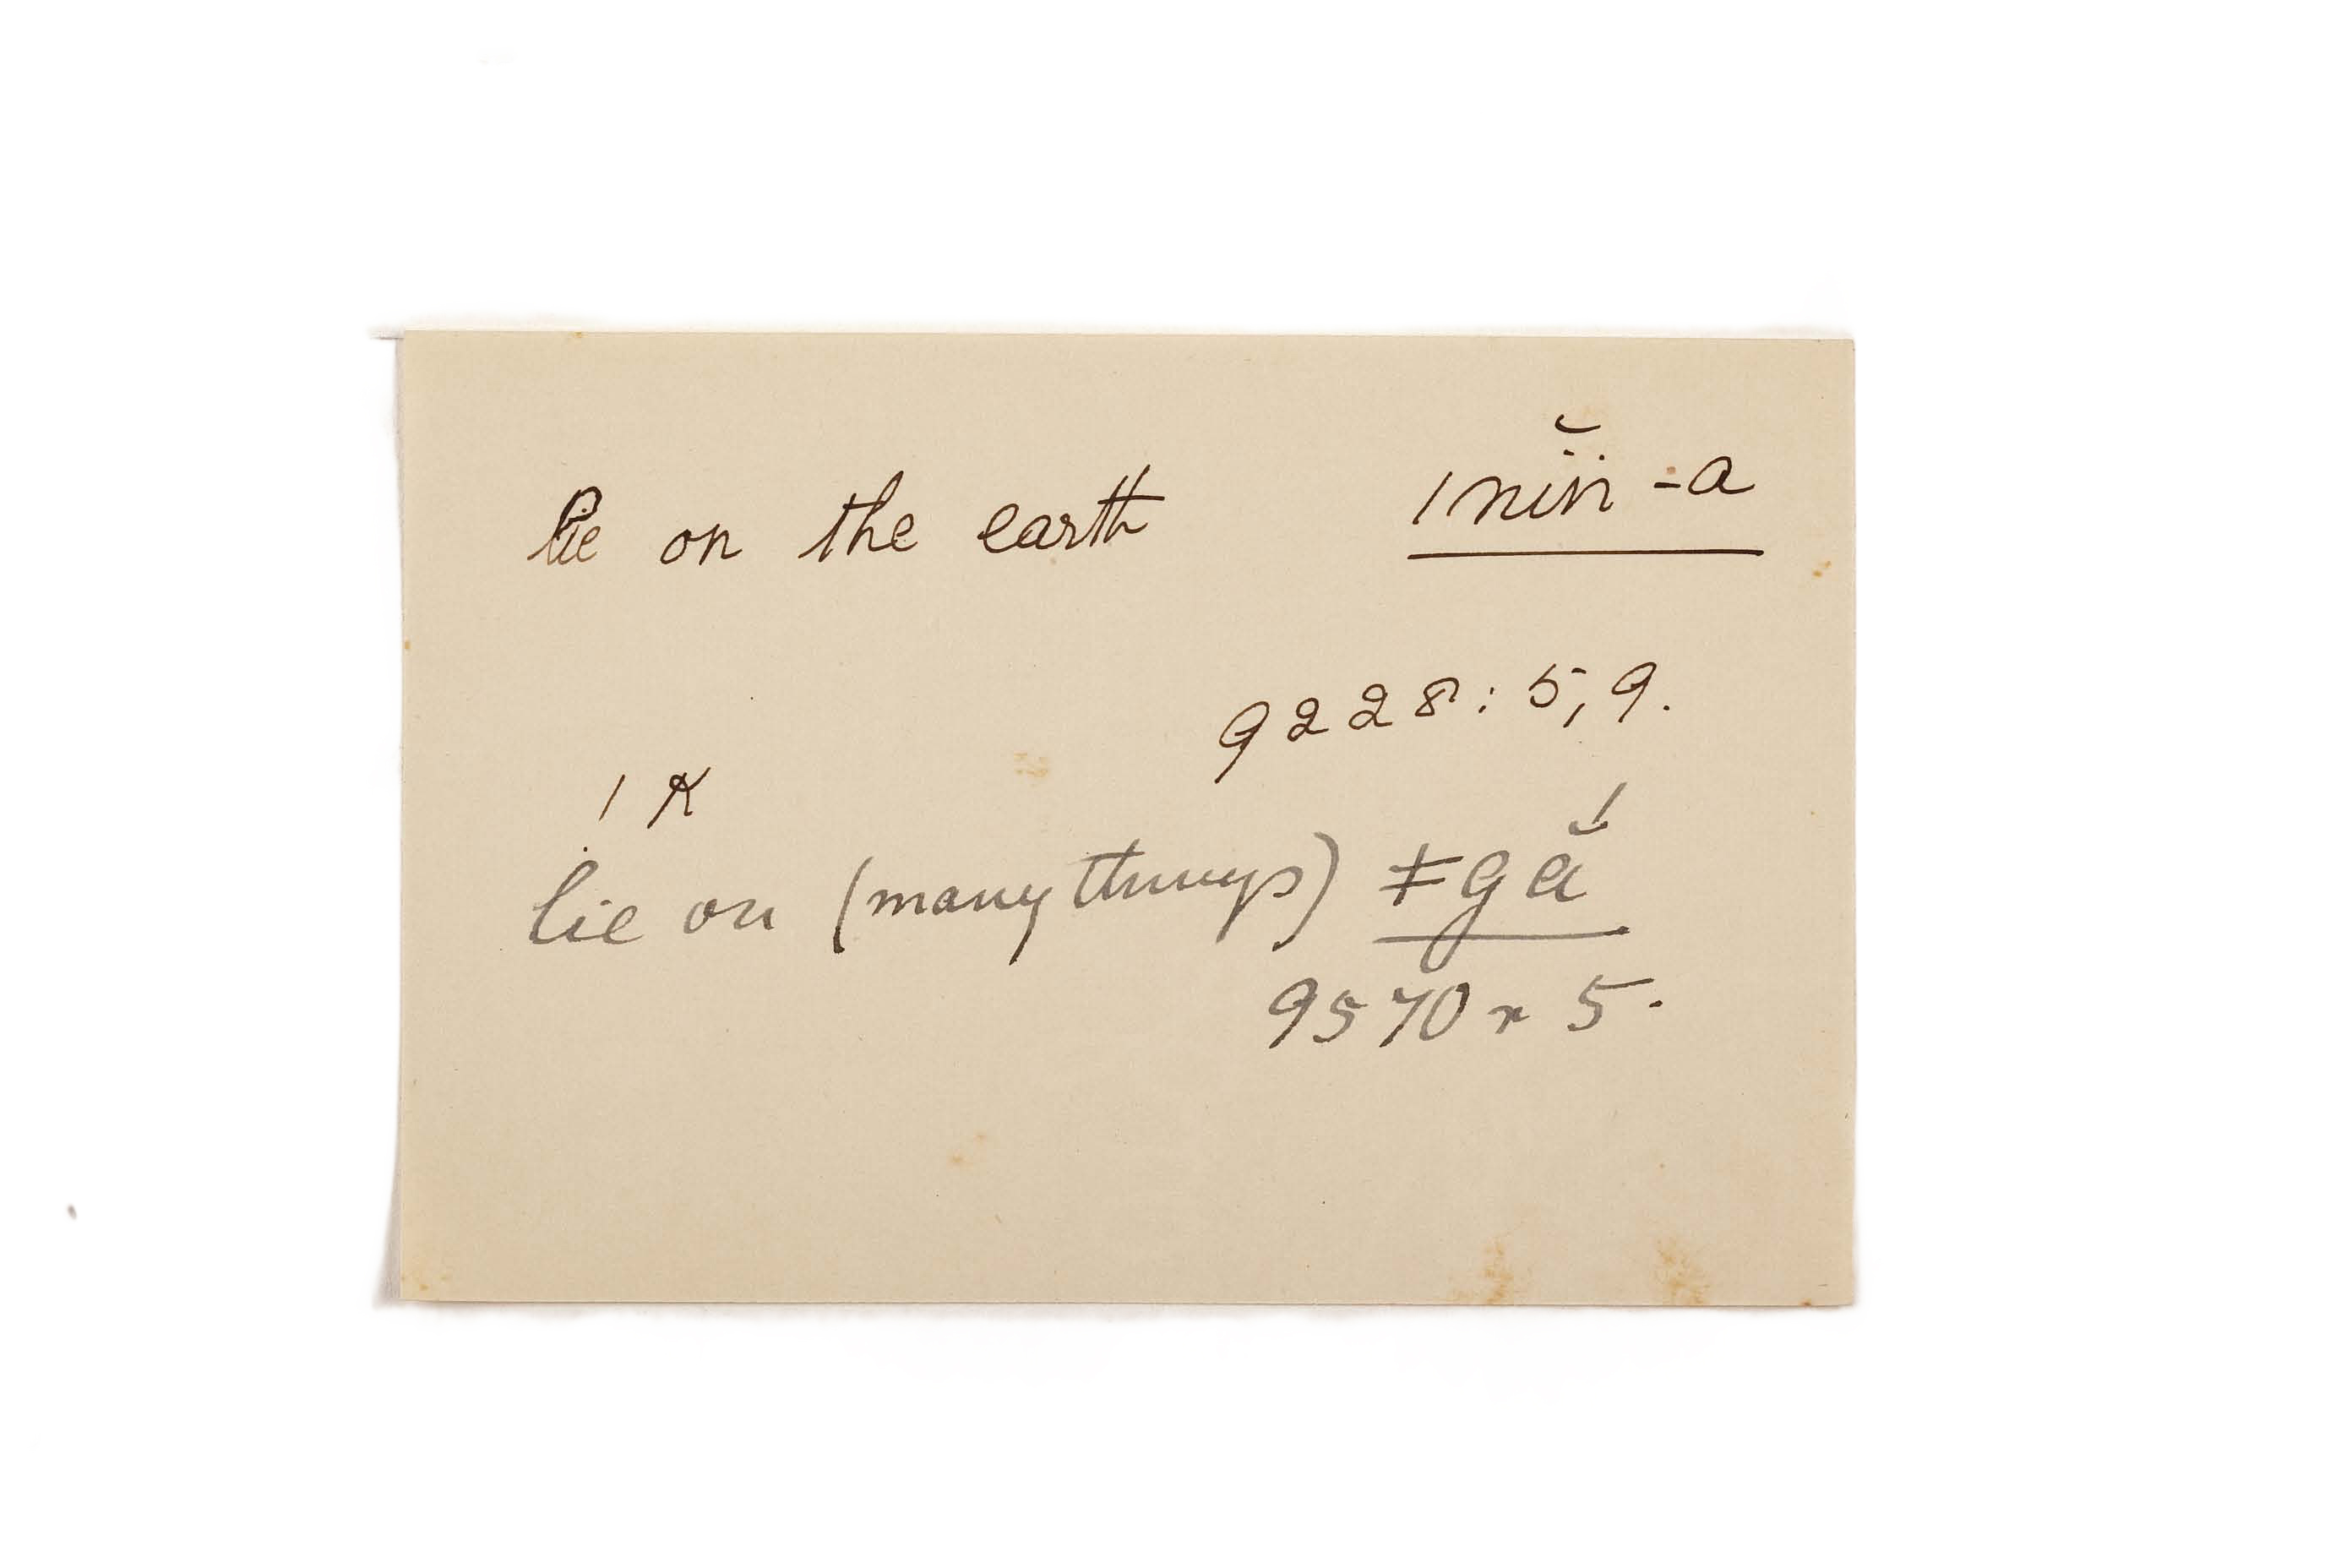 lie on the earth ǀnĭṅ-a
9228: 5, 9.
ǀ K
lie on (many things) ǂgắ
9570 r 5.